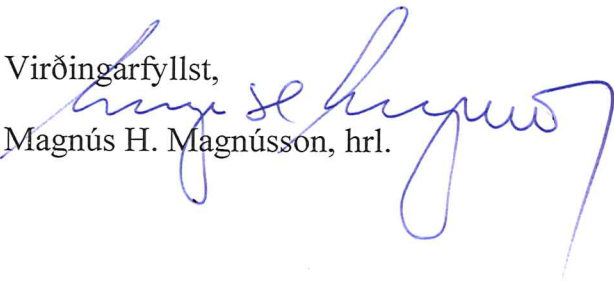 Virðingarfyllst,
Magnús H. Magnússon, hrl.